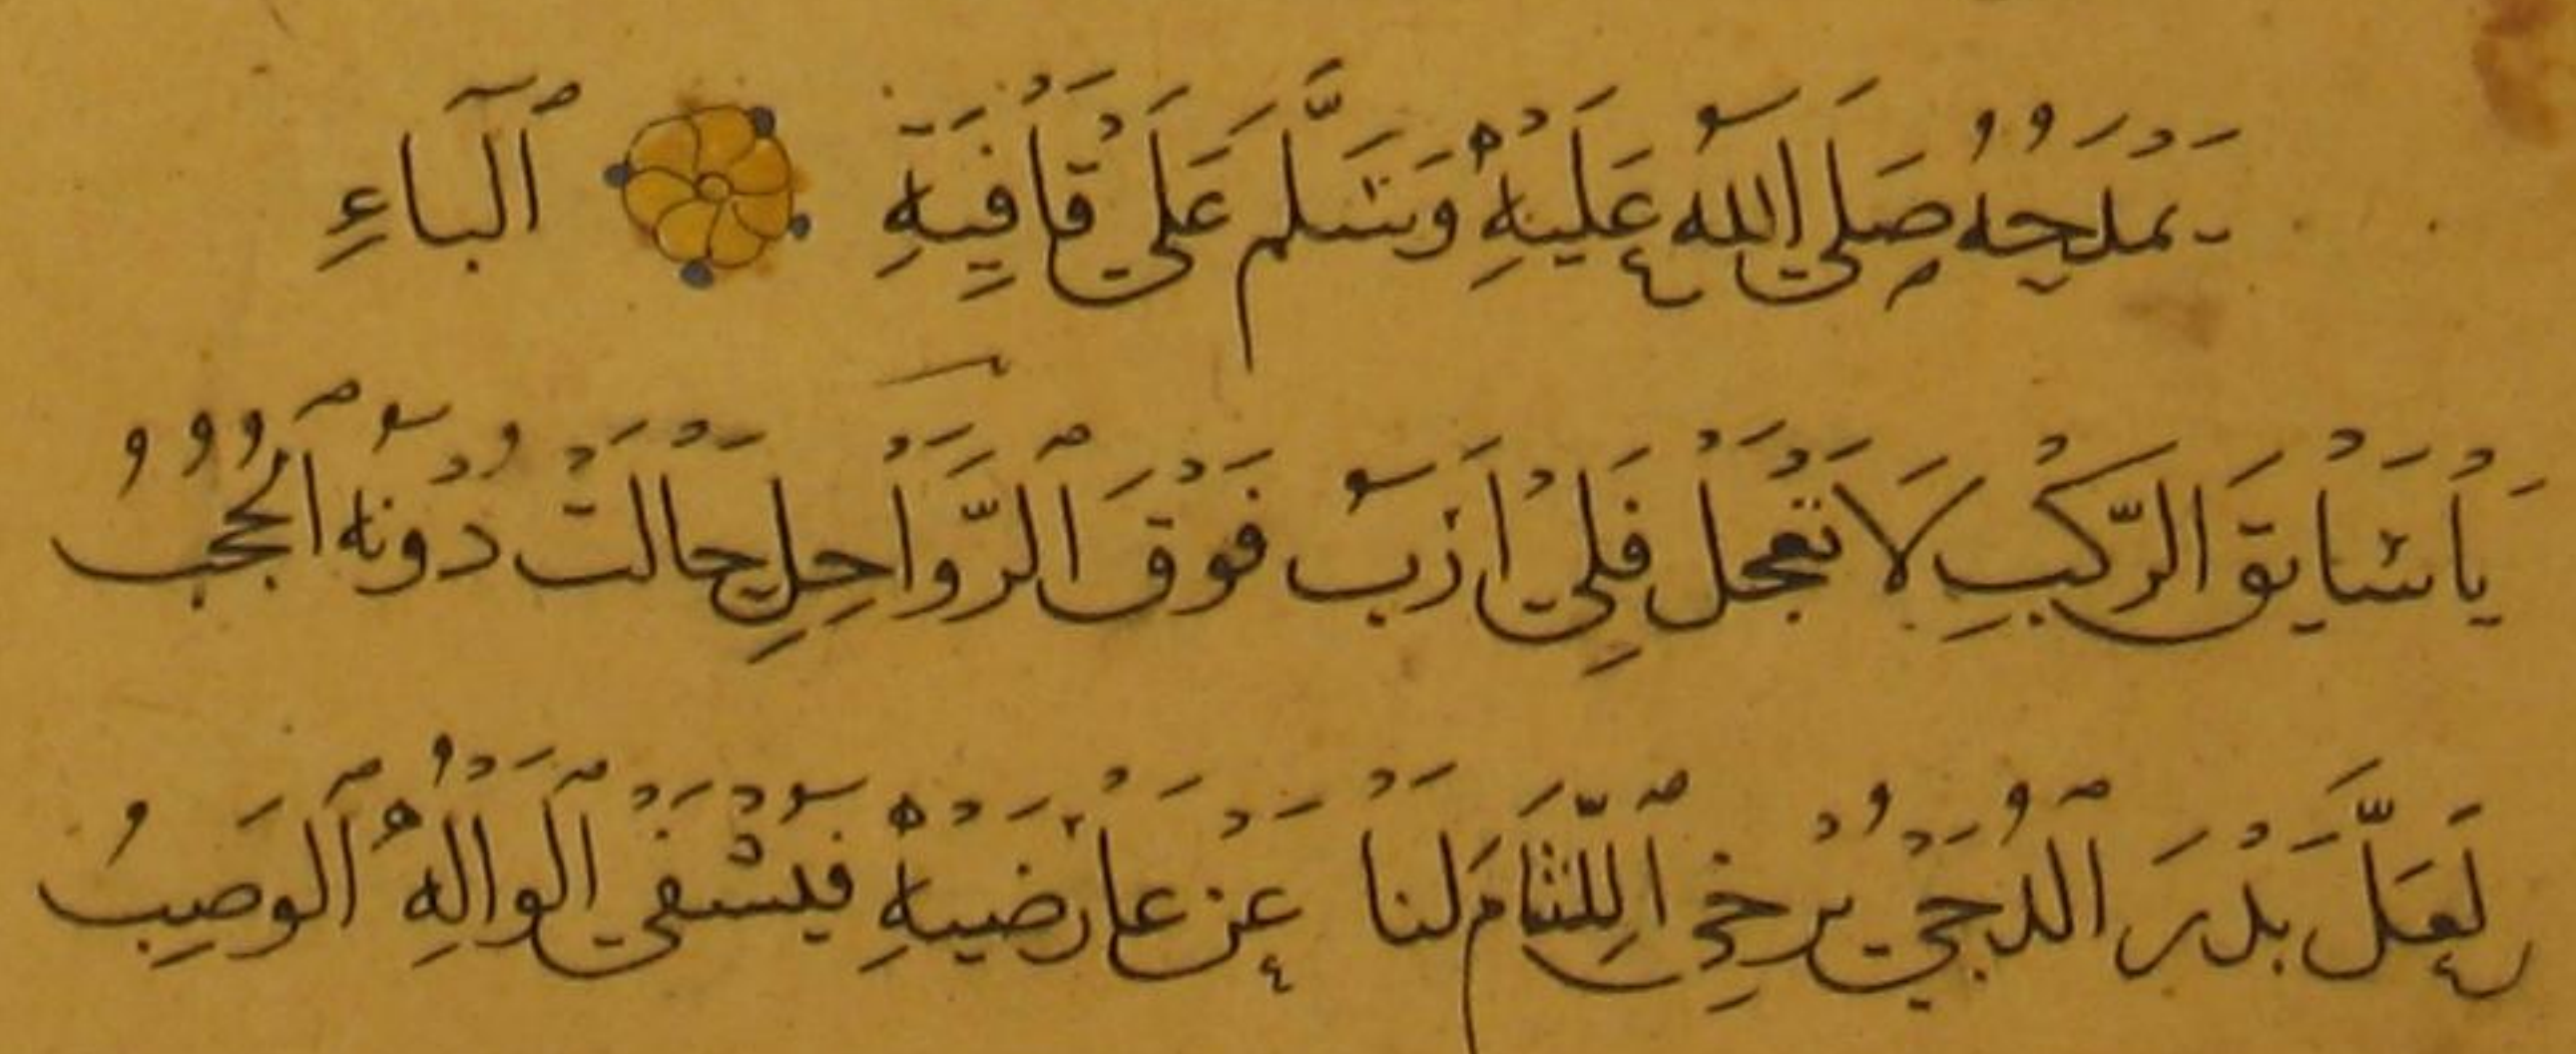 يَمْدَحُهُ صَلَّى اللهُ عَلَيْهِ وَسَلَّمَ عَلَىْ قَاْفِيَةِ ٱلْبَاءِ
يَاْ سَاْيِقَ الرَّكْبِ لَاْ تَعْجَلْ فَلِيْ أَرَبٌ فَوْقَ ٱلرَّوَاْحِلِ حَاْلَتْ دُوْنَهُ ٱلْحُجُبُ
لَعَلَّ بَدْرَ ٱلدُّجَىْ يُرْخِي ٱللِّثَامَ لَنَاْ عَنْ عَاْرِضَيْهِ فَيَشْفَىْ ٱلْوَاْلِهُ ٱلْوَصِبُ